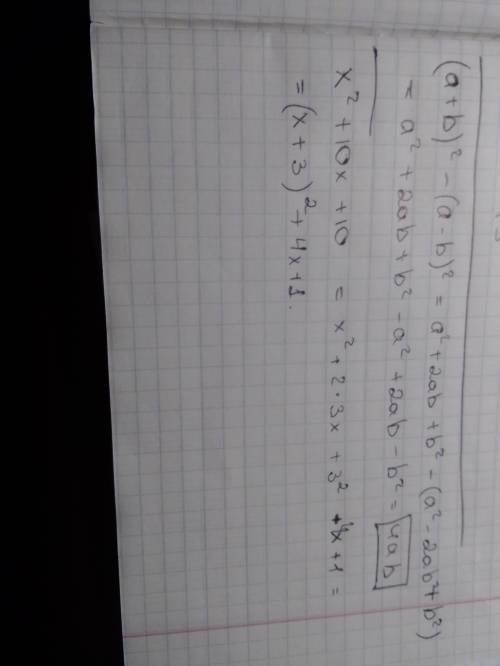 (a+b)² - (a-b)² = a² + 2ab + b² - (a² - 2ab² + b²)
= a² + 2ab + b² - a² + 2ab - b² = 4ab
x² + 10x + 10 = x² + 2·3x + 3² + 4x + 1 =
= (x+3)² + 4x+1.